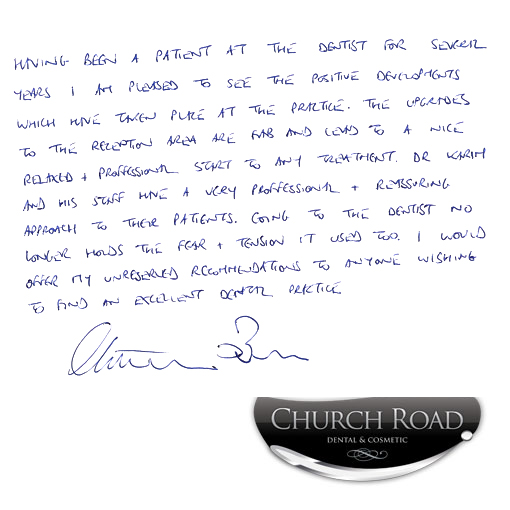 HAVING BEEN A PATIENT AT THE DENTIST FOR SEVERAL
YEARS I AM PLEASED TO SEE THE POSITIVE DEVELOPMENTS
WHICH HAVE TAKEN PLACE AT THE PRACTICE. THE UPGRADES
TO THE RECEPTION AREA ARE FAB AND LEAD TO A NICE
RELAXED + PROFFESSIONAL START TO ANY TREATMENT. DR KARIM
AND HIS STAFF HAVE A VERY PROFFESSIONAL + REASSURING
APPROACH TO THEIR PATIENTS. GOING TO THE DENTIST NO
LONGER HOLDS THE FEAR + TENSION IT USED TOO. I WOULD
OFFER MY UNRESERVED RECOMMENDATIONS TO ANYONE WISHING
TO FIND AN EXCELLENT DENTAL PRACTICE
CHURCH ROAD
DENTAL & COSMETIC